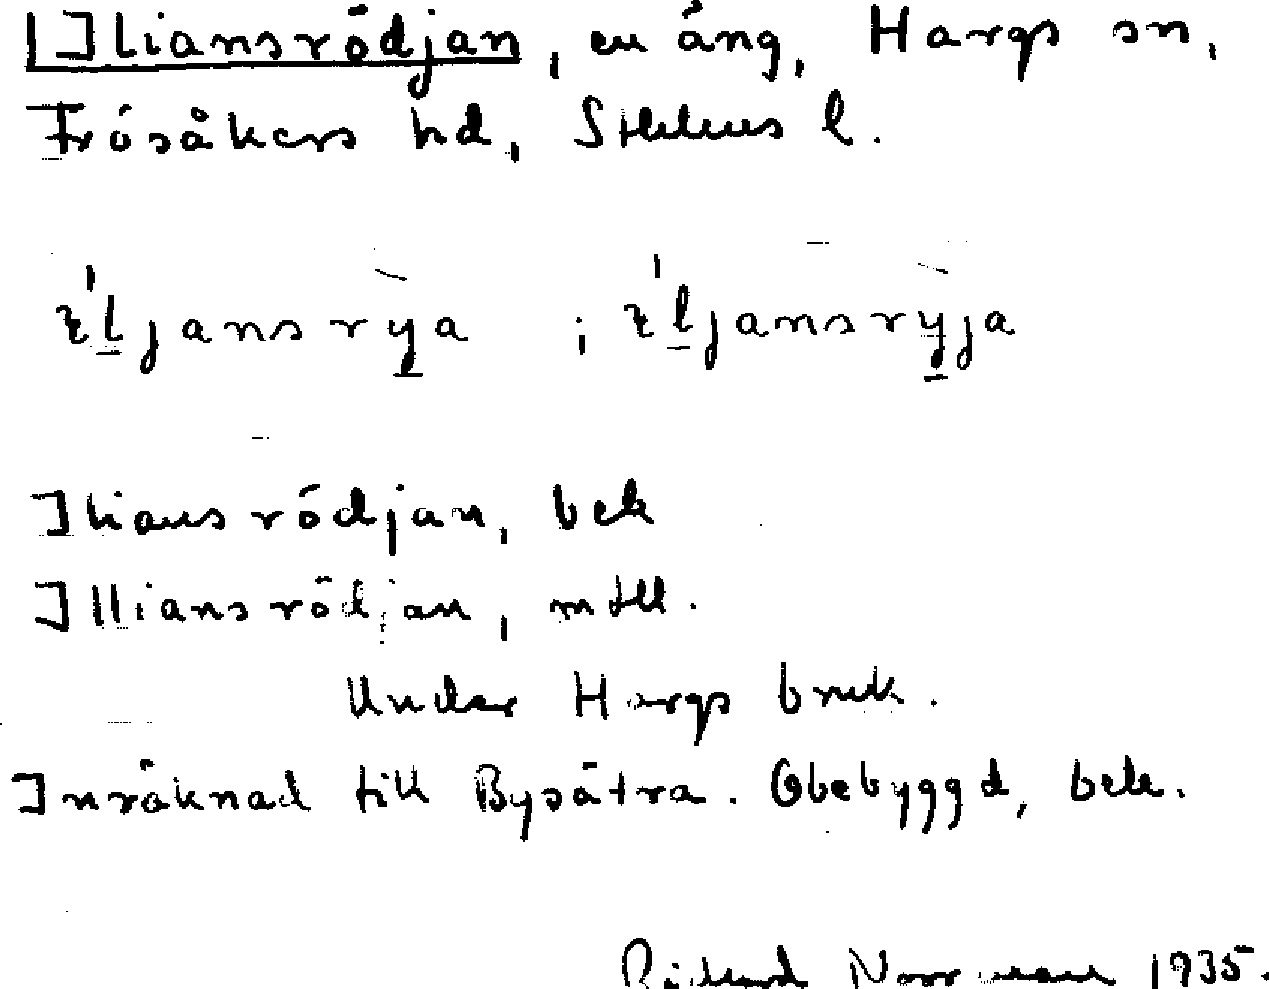 [Iliansrödjan, en äng, Hargs sn,
Frösåkers hd, Sthlms l.
ɩ'ljansrỳa ; ɩ'ljansrỳja
Iliansrödjan, bek
Illiansrödjan, mtll.
Under Hargs bruk.
Inräknad till Bysätra. Obebyggd, bek.
Norrman 1935.